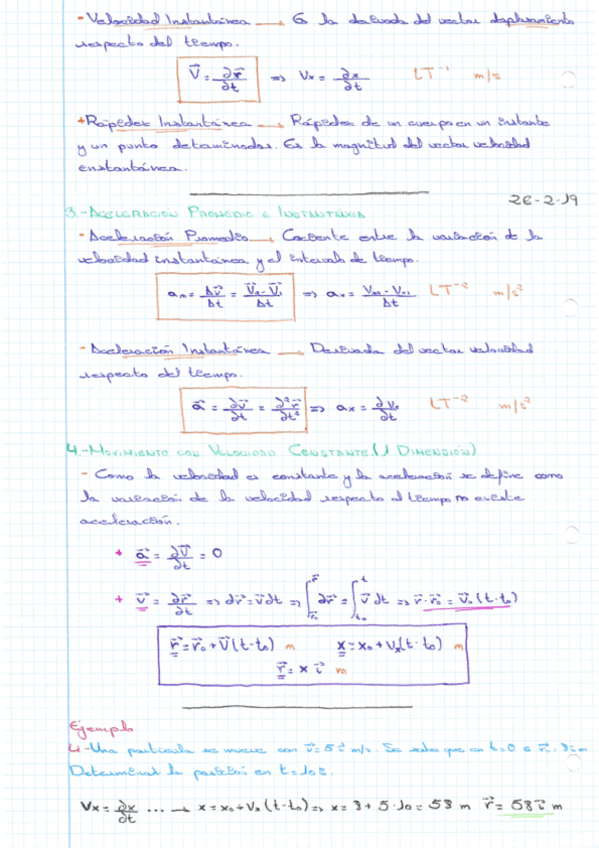 - Velocidad Instantánea → Es la derivada del vector desplazamiento
respecto del tiempo.
V⃗ = ∂r⃗/∂t ⇒ Vx = ∂x/∂t LT⁻¹ m/s
+ Rapidez Instantánea → Rapidez de un cuerpo en un instante
y un punto determinados. Es la magnitud del vector velocidad
instantánea.
26-2-19
3.- ACELERACIÓN PROMEDIO E INSTANTÁNEA
- Aceleración Promedio → Cociente entre la variación de la
velocidad instantánea y el intervalo de tiempo.
aₘ = Δv⃗/Δt = (V⃗₂ - V⃗₁)/Δt ⇒ aₓ = (Vₓ₂ - Vₓ₁)/Δt LT⁻² m/s²
- Aceleración Instantánea → Derivada del vector velocidad
respecto del tiempo.
a⃗ = ∂v⃗/∂t = ∂²r⃗/∂t² ⇒ ax = ∂vx/∂t LT⁻² m/s²
4.- MOVIMIENTO CON VELOCIDAD CONSTANTE (1 DIMENSIÓN)
- Como la velocidad es constante y la aceleración se define como
la variación de la velocidad respecto al tiempo no existe
aceleración.
+ a⃗ = ∂V⃗/∂t = 0
+ v⃗ = ∂r⃗/∂t ⇒ ∂r⃗ = v⃗∂t ⇒ ∫ ∂r⃗ = ∫ v⃗ ∂t ⇒ r⃗ - r⃗₀ = v⃗₀ (t - t₀)
r⃗ = r⃗₀ + V⃗ (t - t₀) m x = x₀ + Vₓ (t - t₀) m
r⃗ = x i⃗ m
Ejemplo
4.- Una partícula se mueve con v⃗ = 5 i⃗ m/s. Se sabe que en t=0
Determinar la posición en t=10s.
Vx = ∂x/∂t ... → x = x₀ + Vx (t - t₀) ⇒ x = 8 + 5·10 = 58 m r⃗ = 58 i⃗ m